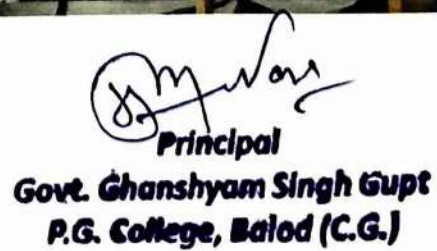 Principal
Govt. Ghanshyam Singh Gupt
P.G. College, Balod (C.G.)